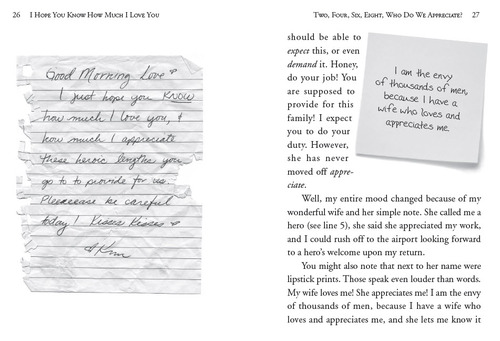 26 I Hope You Know How Much I Love You
Good Morning Love
I just hope you KNOW
how much I love you, &
how much I appreciate
these heroic lengths you
go to to provide for us.
Pleeeease be careful
today! Kisses Kisses
Two, Four, Six, Eight, Who Do We Appreciate? 27
should be able to
expect this, or even
demand it. Honey,
do your job! You
are supposed to
provide for this
family! I expect
you to do your
duty. However,
she has never
moved off appre-
ciate.
I am the envy
of thousands of men,
because I have a
wife who loves and
appreciates me.
Well, my entire mood changed because of my
wonderful wife and her simple note. She called me a
hero (see line 5), she said she appreciated my work,
and I could rush off to the airport looking forward
to a hero's welcome upon my return.
You might also note that next to her name were
lipstick prints. Those speak even louder than words.
My wife loves me! She appreciates me! I am the envy
of thousands of men, because I have a wife who
loves and appreciates me, and she lets me know it